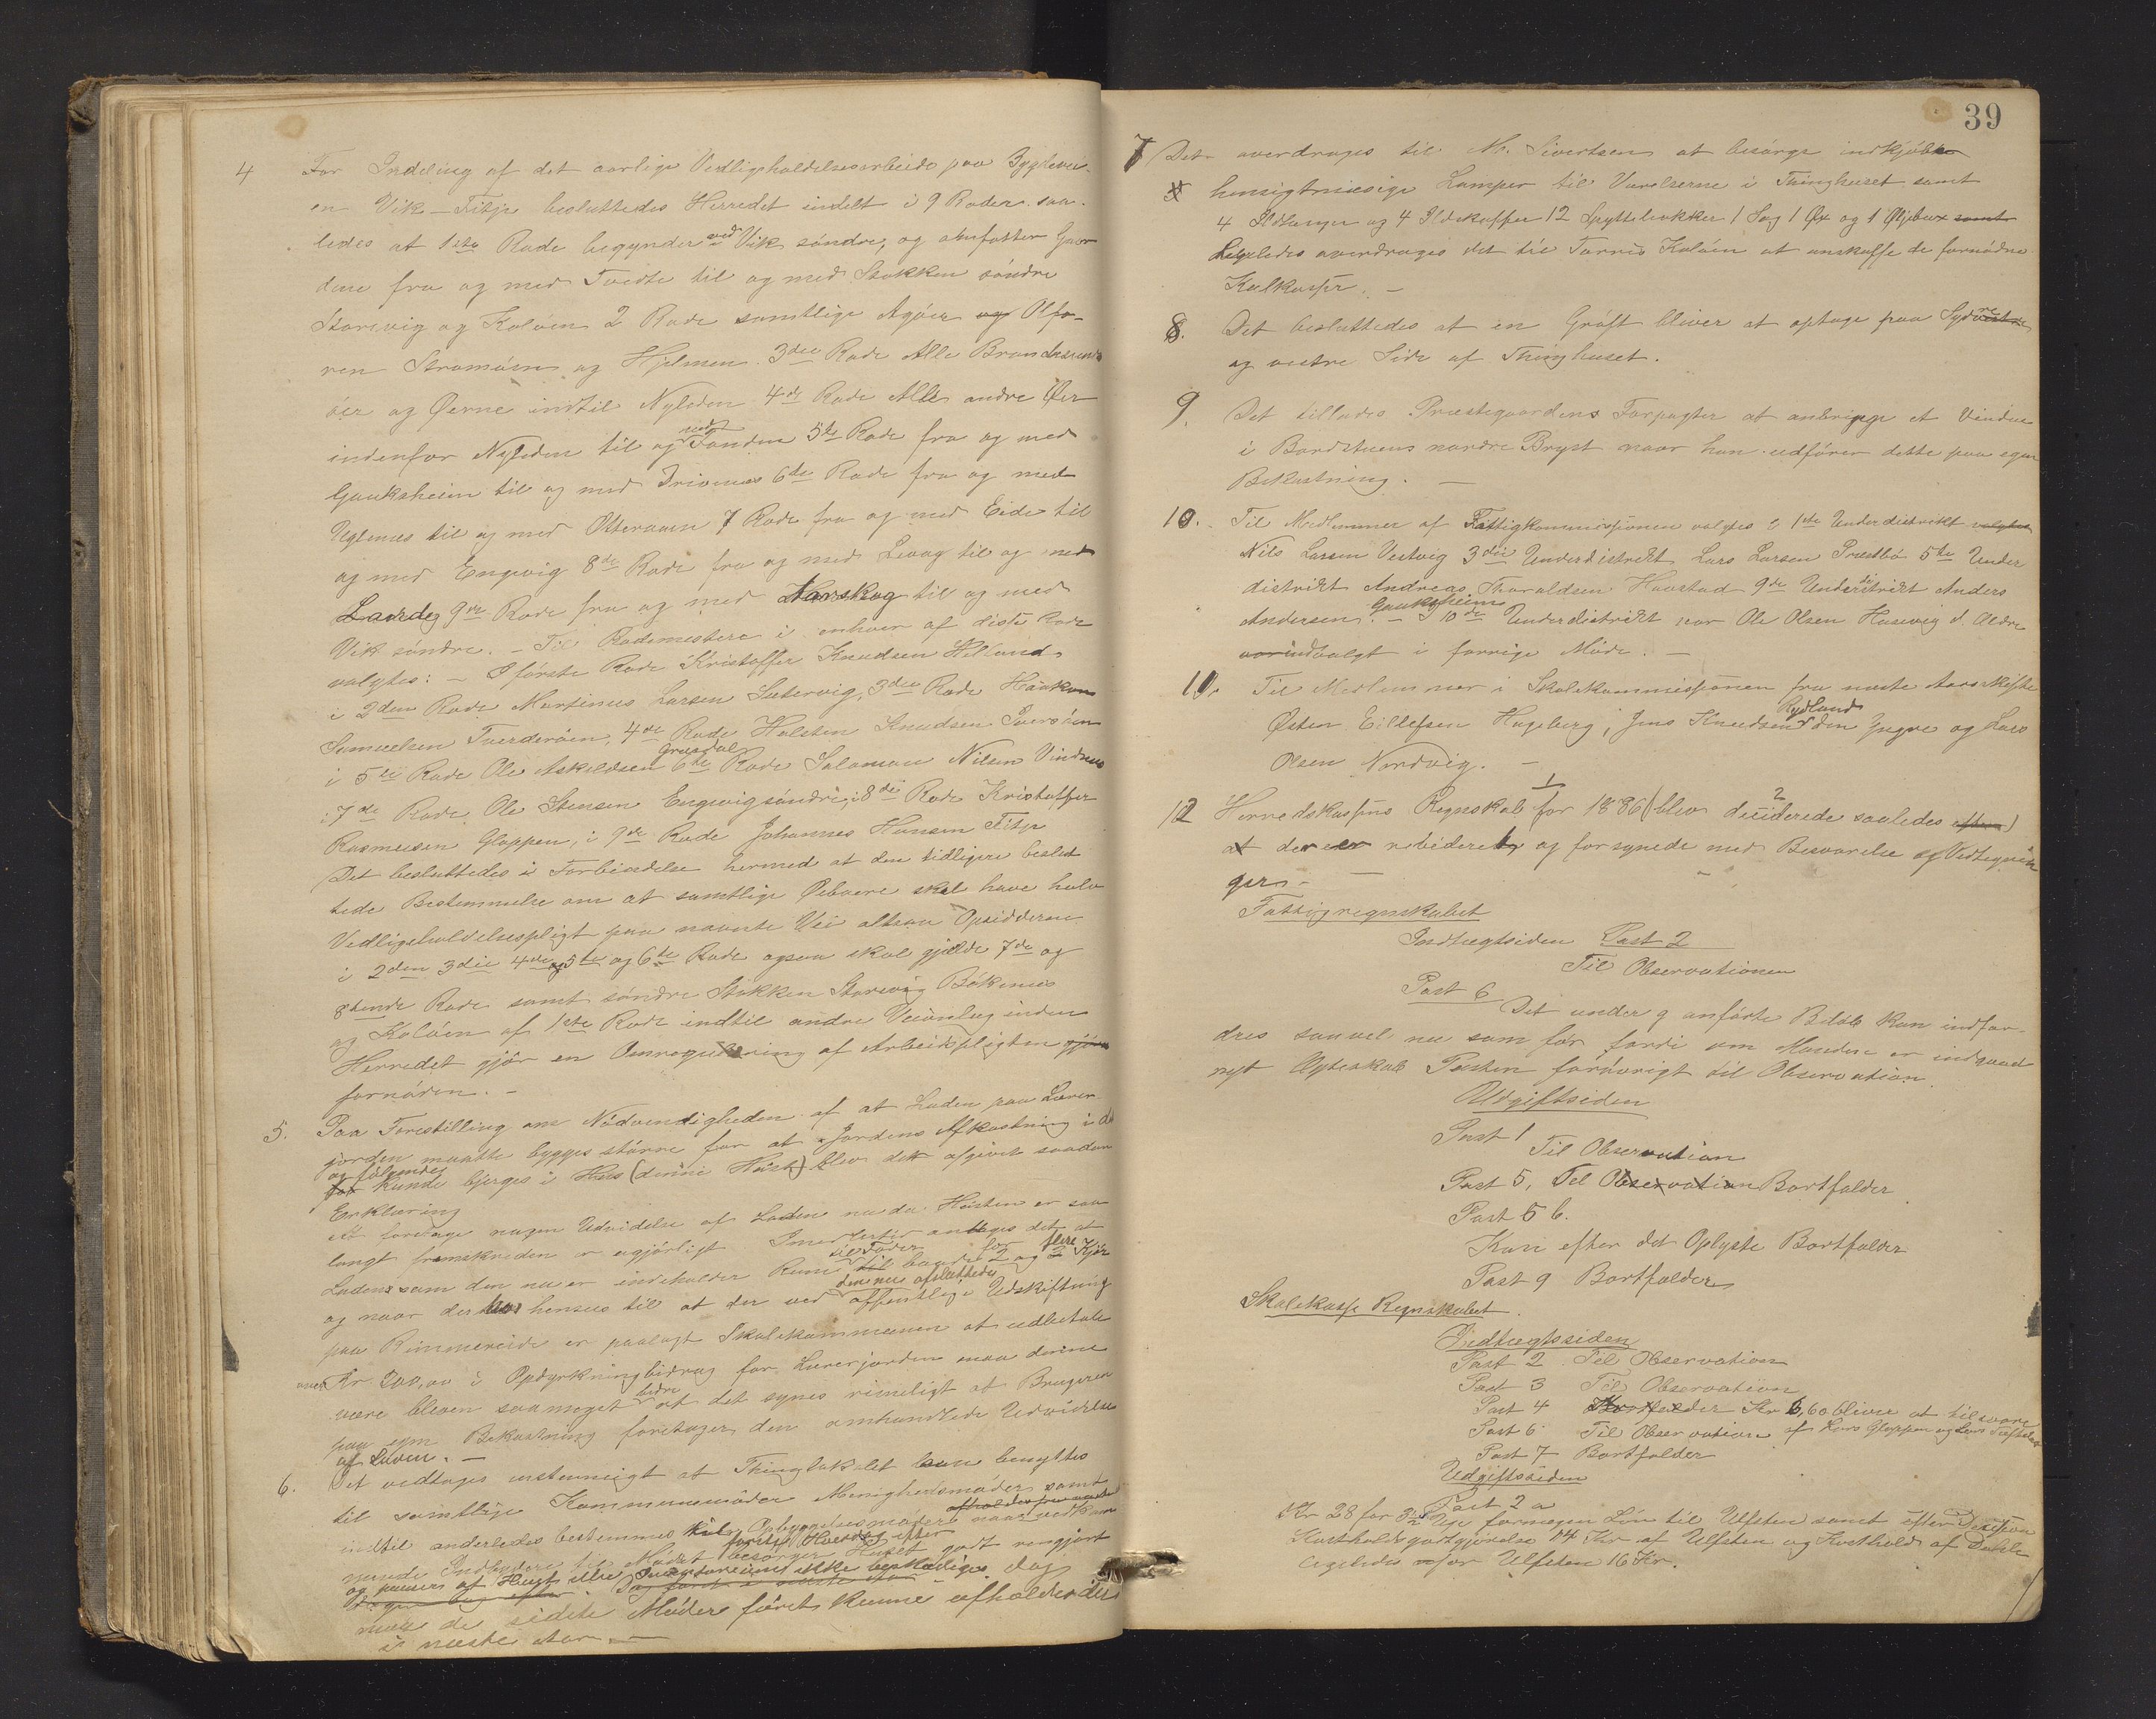 4 For Inddeling af det aarlige Vedligeholdelsesarbeide paa Bygdevei-
en Vik - Fitje besluttedes Herredet indelt i 9 Roder saa-
ledes at 1ste Rode begynder ved Vik søndre, og omfatter Gaar
dene fra og med Tvedte til og med Stokken søndre
Storevig og Koløen 2 Rode samtlige Agøer og Olfo-
ren Stromøen og Hjelmen. 3die Rode Alle Brandasunds
øer og Øerne indtil Nyleden 4de Rode Alle andre Øer
indenfor Nyleden til og med Fonden 5te Rode fra og med
Gauksheim til og med Drivenes 6te Rode fra og med
Uglenes til og med Otteraaen 7 Rode fra og med Eide til
og med Engevig 8de Rode fra og med Levag til og med
9de Rode fra og med Aarskog til og med
Vik søndre. - Til Rodemestere i enhver af disse Rode
valgtes: - I første Rode Kristoffer Knudsen Helland
i 2den Rode Martinus Larsen Sætervig, 3die Rode Haakon
Samuelsen Tverderøen, 4de Rode Halsten Knudsen Iversøen
i 5te Rode Ole Askildsen Grøsdal 6te Rode Salamon Nilsen Vindnes
i 7de Rode Ole Stensen Engevig søndre, i 8de Rode Kristoffer
Rasmussen Gloppen, i 9de Rode Johannes Hansen Fitje
Det besluttedes i Forbindelse hermed at den tidligere beslut
tede Bestemmelse om at samtlige Øeboere skal have halv
Vedligeholdelsespligt paa nævnte Vei altsaa Opsidderne
i 2den 3die 4de og 5te og 6te Rode ogsaa skal gjælde 7de og
8tende Rode samt søndre Stokken Storevig Bøkenes
og Koløen af 1ste Rode indtil andre Veianlæg inden
Herredet gjør en Omregulering af Arbeidspligten
fornøden. -
5. Paa Forestilling om Nødvendigheden af at Laden paa Lærer
jorden maatte bygges større for at Jordens Afkastning i de
og følgende
for kunde bjerges i Hus (denne Høst) blev det afgivet saadan
Erklæring
At foretage nogen Udvidelse af Laden nu da Høsten er saa
langt fremskreden er ugjørligt. Imidlertid antages det at
Laden som den nu er indeholder Rum til Foder for 2 og flere Kjør
og naar der tas hensyn til at der ved den nu afsluttede offentlige Udskiftning
paa Rimmereide er paalagt Skolekommunen at udbetale
over Kr. 200,00 i Opdyrkningsbidrag for Lærerjorden maa denne
være bleven saameget bedre at det synes rimeligt at Brugeren
paa egen Bekostning foretager den omhandlede Udvidelse
af Laden. -
6. Det vedtages enstemmigt at Thinglokalet kan benyttes
til samtlige Kommunemøder Menighedsmøder samt
indtil anderledes bestemmes Opbyggelsesmøder naar vedkom
mende Indbydere til Mødet besørger Huset godt rengjort
og passer at Huset eller Inventariet ikke beskadiges.
de sidste Møder først kunne afholdes
i næste Aar. -
39
7 Det overdrages til M. Sivertsen at besørge indkjøbt
hensigtmæsige Lamper til Værelserne i Thinghuset samt
4 Ildtænger og 4 Ildskuffer 12 Spyttebakker 1 Sag 1 Øx og 1 samt
Ligeledes overdrages det til Tarris Koløen at anskaffe de fornødne
Kulkasser. -
8. Det besluttedes at en Grøft bliver at optage paa
og vestre Side af Thinghuset.
9. Det tillades Præstegaardens Forpagter at anbringe et Vindue
i Bordstuens nordre Bryst naar han udfører dette paa egen
Bekostning. -
10. Til Medlemmer af Fattigkommissjonen valgtes i 1ste Underdistrikt valgtes
Nils Larsen Vestvig 3die Underdistrikt Lars Larsen Præstbø 5te Under
distrikt Andreas Tharaldsen Havstad 9de Underdistrikt Anders
Andersen Gauksheim - I 10de Underdistrikt var Ole Olsen Husevig d. Ældre
indvalgt i forrige Møde. -
11. Til Medlemmer i Skolekommissjonen fra næste Aarsskifte
Østen Eillefsen Hageberg, Jens Knudsen Rydland den Yngre og Lars
Olsen Nordvig. -
12 Herredskassens Regnskab for 1886 blev deciderede saaledes
at der er reviderede og forsynede med Besvarelse og Vedtegnin
ger. -
Fattigregnskabet
Indtægtsiden Post 2
Til Observationen
Post 6
Det under 9 anførte Beløb kan indfor-
dres saavel nu som før fordi om Manden er indgaaed
nyt Ægteskab Posten forøvrigt til Observation.
Udgiftsiden
Post 1
Til Observation
Post 5, Til Observation Bortfalder
Post 5 b.
Kan efter det Oplyste Bortfalder
Post 9 Bortfalder
Skolekasse Regnskabet.
Indtægtssiden
Post 2 Til Observation
Post 3 Til Observation
Post 4 Bortfalder Kr 6,60 bliver at tilsvare
af Lars Gloppen og Lars
Post 6 Til Observation
Post 7 Bortfalder
Udgiftssiden
Post 2 a
Kr 28 for 3½ Uge formegen Løn til Ulfsten samt
Kostholdsgodtgjørelse 14 Kr af Ulfsten og Kosthold af
Ligeledes for Ulfsten 16 Kr.